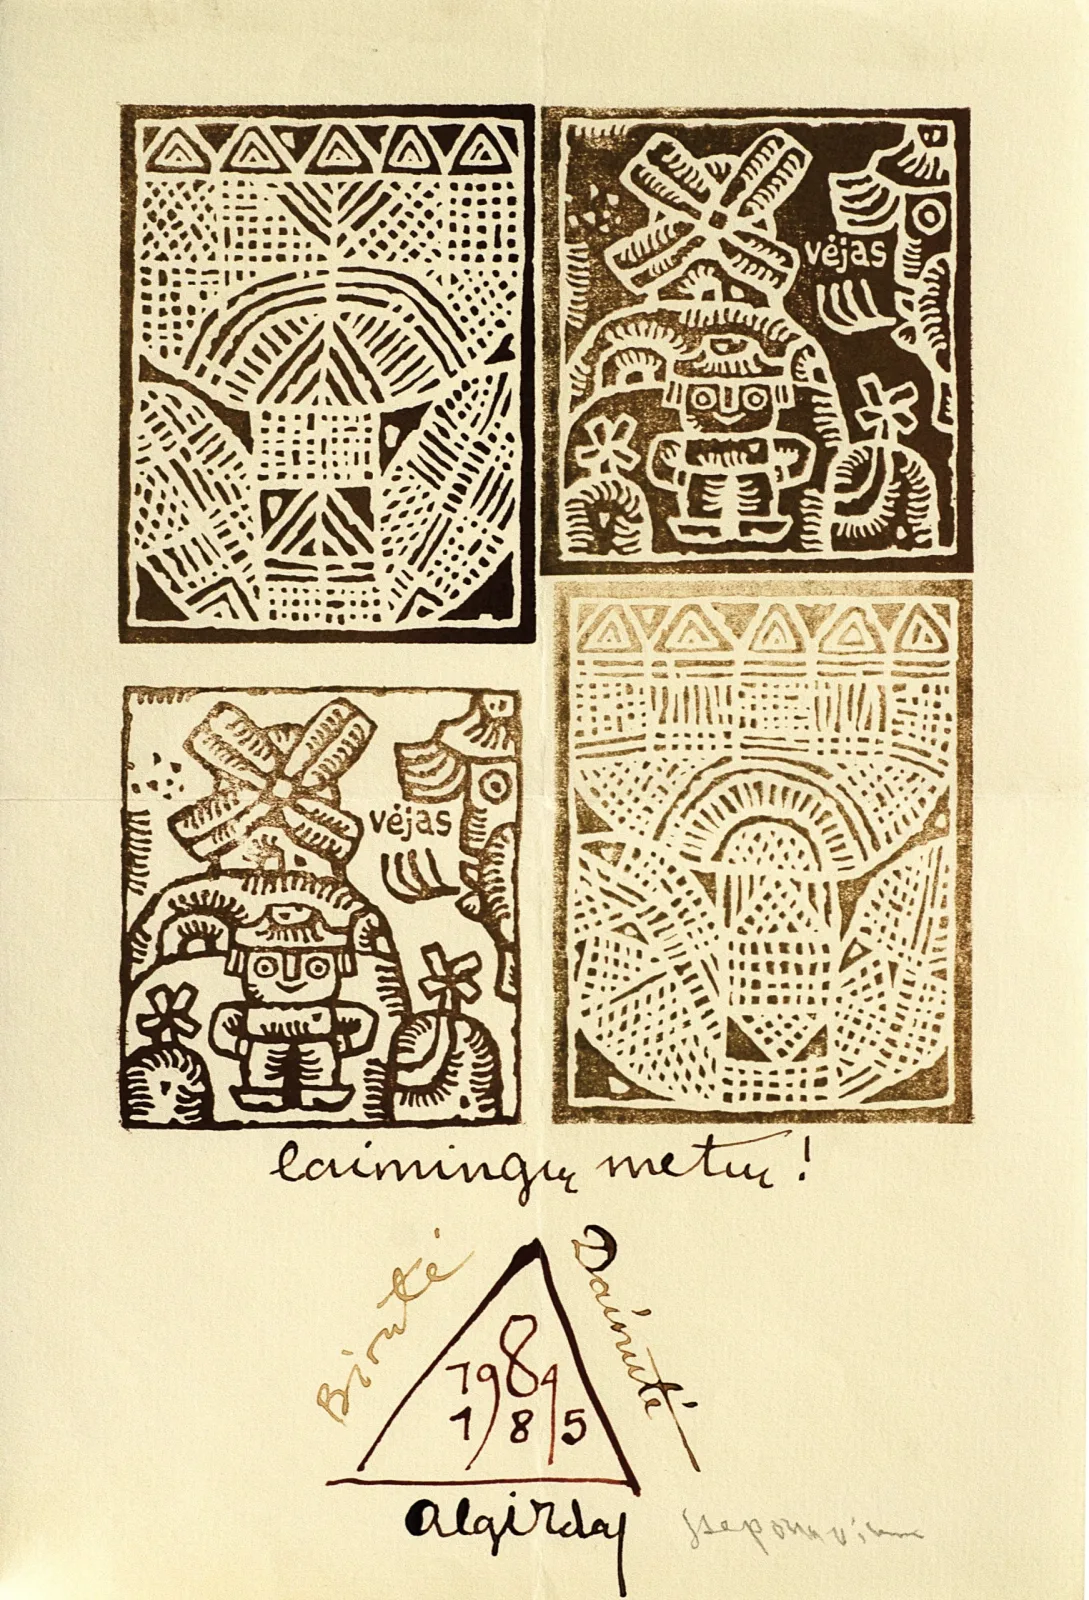 vėjas
vėjas
laimingų metų!
Birutė
Dainutė
1984
1985
Algirdas